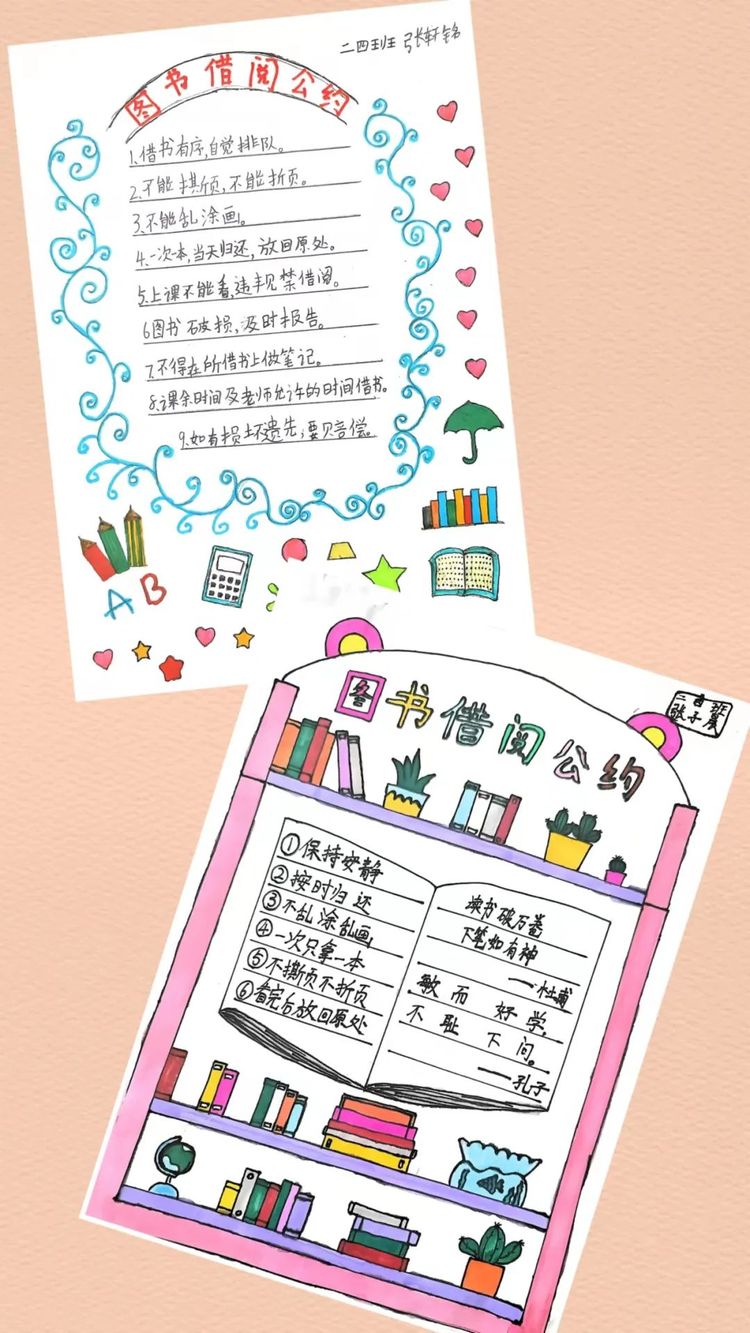 二四班 张轩铭
图书借阅公约
1.借书有序,自觉排队。
2.不能撕页,不能折页。
3.不能乱涂画。
4.一次一本,当天归还,放回原处。
5.上课不能看,违规禁借阅。
6图书破损,及时报告。
7.不得在所借书上做笔记。
8.课余时间及老师允许的时间借书。
9.如有损坏遗先,要赔偿。
A B
二四班
张子晨
图书借阅公约
①保持安静
②按时归还
③不乱涂乱画
④一次只拿一本
⑤不撕页不折页
⑥看完后放回原处
读书破万卷
下笔如有神
——杜甫
敏而好学,
不耻下问。
——孔子